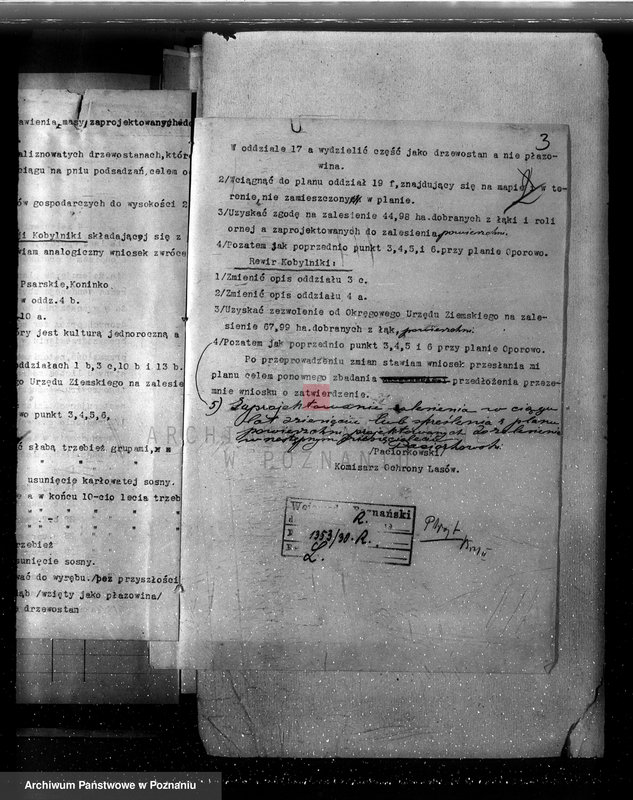 awienia masy zaprojektowanych do
aliznowatych drzewostanach,któr
ciągu na pniu podsadzań,celem o
ów gospodarczych do wysokości 2
ji Kobylniki składającej się z
wiam analogiczny wniosek zwróce
Psarskie,Koninko
w oddz.4 b.
10 a.
óry jest kulturą jednoroczną a
ddziałach 1 b,3 c,10 b i 13 b.
go Urzędu Ziemskiego na zalesie
wo punkt 3,4,5,6,
ć słabą trzebież grupami,
usunięcie karłowatej sosny.
e a w końcu 10-cio lecia trzeb
rzebież
sunięcie sosny.
wać do wyrębu./bez przyszłości
ąb /wzięty jako płazowina/
o drzewostan
3
W oddziale 17 a wydzielić część jako drzewostan a nie płazo-
wina.
2/Wciągnąć do planu oddział 19 f,znajdujący się na mapie i w te-
renie,nie zamieszczony w planie.
3/Uzyskać zgodę na zalesienie 44,98 ha.dobranych z łąki i roli
ornej a zaprojektowanych do zalesienia powierzchni.
4/Pozatem jak poprzednio punkt 3,4,5,i 6.przy planie Oporowo.
Rewir Kobylniki:
1/Zmienić opis oddziału 3 c.
2/Zmienić opis oddziału 4 a.
3/Uzyskać zezwolenie od Okręgowego Urzędu Ziemskiego na zale-
sienie 67,99 ha.dobranych z łąk, powierzchni.
4/Pozatem jak poprzednio punkt 3,4,5 i 6 przy planie Oporowo.
Po przeprowadzeniu zmian stawiam wniosek przesłania mi
planu celem ponownego zbadania przedłożenia przeze-
mnie wniosku o zatwierdzenie.
5) Zaprojektowanie zalesienia w ciągu
lat dziesięciu lub skreślenia z planu
powierzchni projektowanych do zalesienia
w następnym
Paciorkowski
/Paciorkowski/
Komisarz Ochrony Lasów.
ARCHIWUM
W POZNANIU
Poznański
R.
1353/30.R.
L.
Archiwum Państwowe w Poznaniu